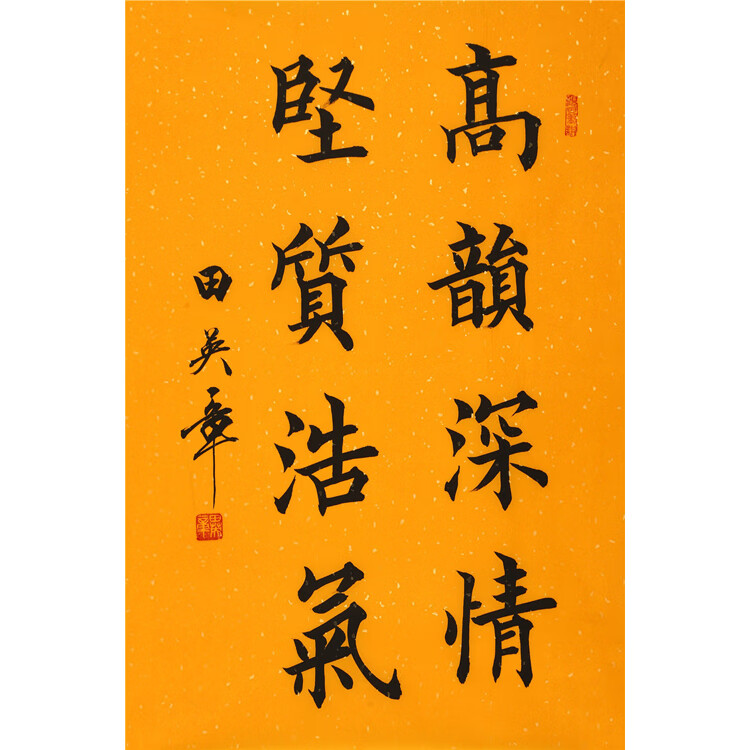 高韻深情
堅質浩氣
田英章